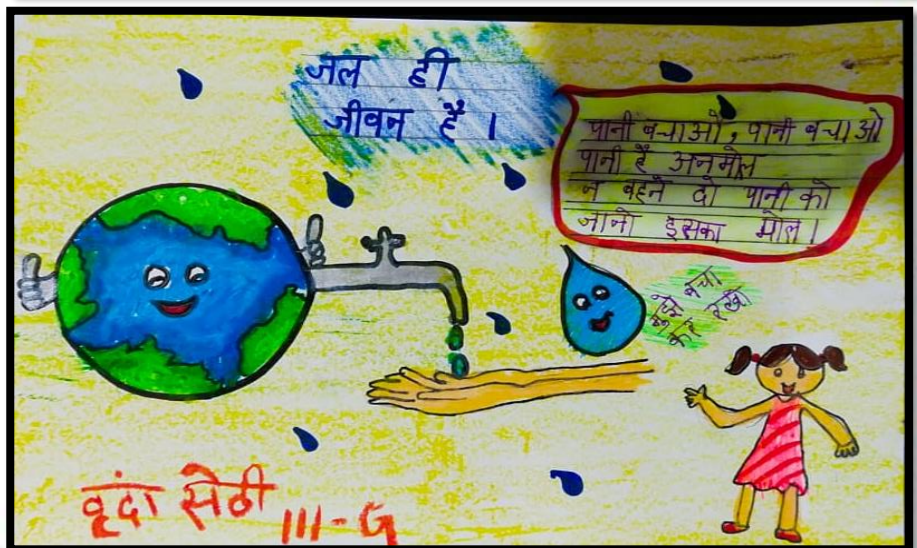 जल ही
जीवन है ।
पानी बचाओ, पानी बचाओ
पानी है अनमोल
न बहने दो पानी को
जानो इसका मोल ।
बचा
कर रखो
वृंदा सेठी III-G